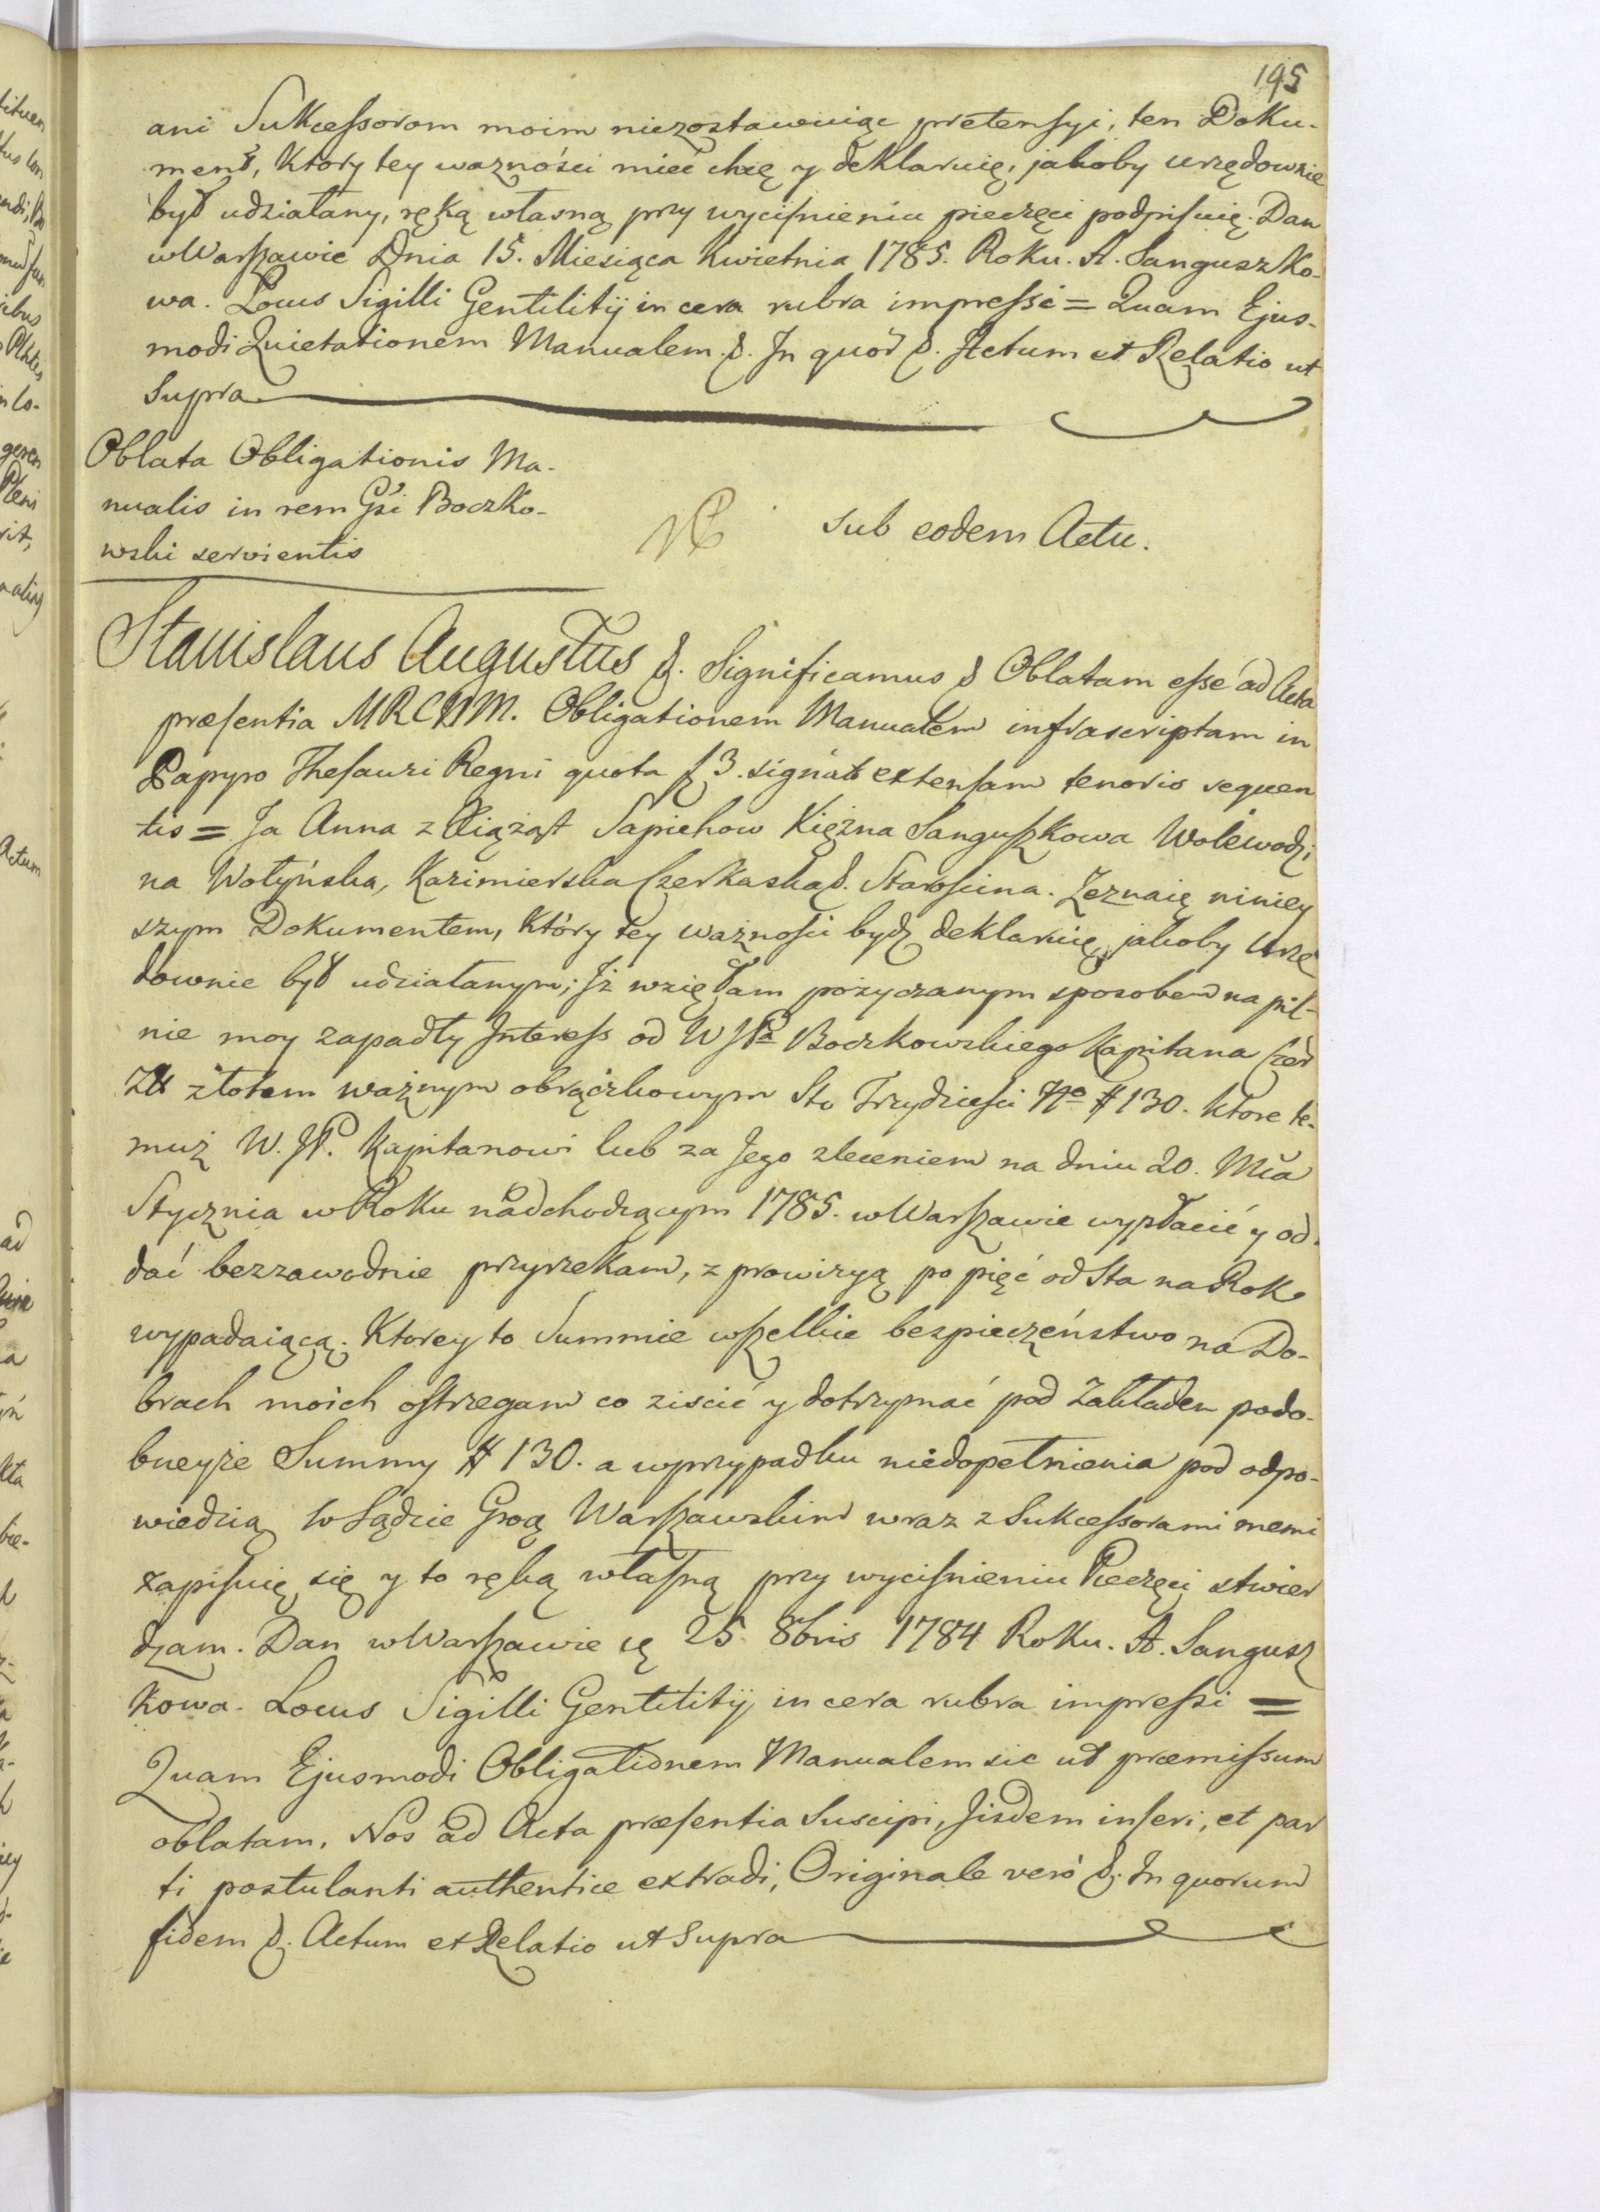 195
ani Sukcessorom moim niezostawuiąc pretensyi, ten Doku-
ment, Ktory tey wazności mieć chcę y deklaruię, jakoby urzędownie
był udziałany, ręką własną przy wyciśnieniu pieczęci podpisuię. Dan
w Warszawie Dnia 15. Miesiąca Kwietnia 1785. Roku. A. Sanguszko-
wa. Locus Sigilli Gentilitij in cera rubra impressi = Quam Ejus-
modi Quietationem Manualem &. In quor &. Actum et Relatio ut
Supra
Oblata Obligationis Ma-
nualis in rem Gsi Boczko-
wski servientis
sub eodem Actu.
Stanislaus Augustus &. Significamus & Oblatam esse ad Acta
præsentia MRCNM. Obligationem Manualem infrascriptam in
Papyro Thesauri Regni quota f 3. signat extensam tenoris sequen
tis = Ja Anna z Xiążąt Sapiehow Xiężna Sanguszkowa Wolewodzi
na Wołyńska, Kazimierska Czerkaska &. Starościna. Zeznaię niniey
szym Dokumentem, Który tey ważności bydź deklaruię, jakoby Urzę
downie był udziałanym; Iż wzięłam pożyczanym sposobem na pil-
nie moy zapadły Interess od WJPa Boczkowskiego Kapitana Czer
Złł złotem ważnym obrączkowym Sto Trzydzieści No # 130. ktore te-
muż W. JP. Kapitanowi lub za Jego zleceniem na dniu 20. Mca
Stycznia w Roku nadchodzącym 1785. w Warszawie wypłacić y od-
dać bezzawodnie przyrzekam, z prowizyą po pięć od Sta na Rok
wypadaiącą. Ktorey to Summie wszelkie bezpieczeństwo na Do-
brach moich ostrzegam co ziścić y dotrzymać pod Zakładem podo-
bneyże Summy # 130. a w przypadku niedopełnienia pod odpo-
wiedzią w Sądzie Grog Warszawskim wraz z Sukcessorami memi
zapisuię się y to ręką własną przy wyciśnieniu Pieczęci stwier
dzam. Dan w Warszawie 25 8bris 1784 Roku. A. Sangusz
kowa. Locus Sigilli Gentilitij in cera rubra impressi =
Quam Ejusmodi Obligationem Manualem sic ut præmissum
oblatam, Nos ad Acta præsentia Suscipi, Iisdem inseri, et par
ti postulanti authentice extradi, Originale verò &. In quorum
fidem &. Actum et Relatio ut Supra